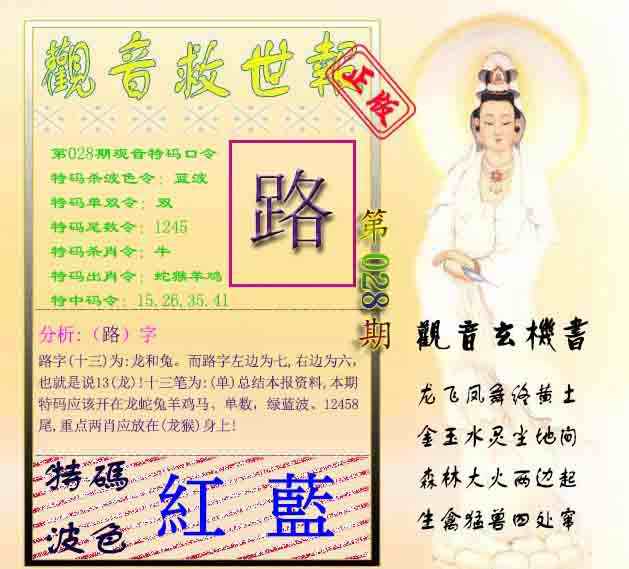 觀音救世報
正传
第028期观音特码口令
特码杀波色令：蓝波
特码单双令：双
特码尾数令：1245
特码杀肖令：牛
特码出肖令：蛇猴羊鸡
特中码令：15.26,35.41
路
第028期
分析:（路）字
路字(十三)为:龙和兔。而路字左边为七,右边为六,
也就是说13(龙)!十三笔为:(单)总结本报资料,本期
特码应该开在龙蛇兔羊鸡马、单数，绿蓝波、12458
尾,重点两肖应放在(龙猴)身上!
特碼
波色
紅 藍
觀音玄機書
龙飞凤舞络黄土
金玉水灵尘地间
森林大火两边起
生禽猛兽四处窜